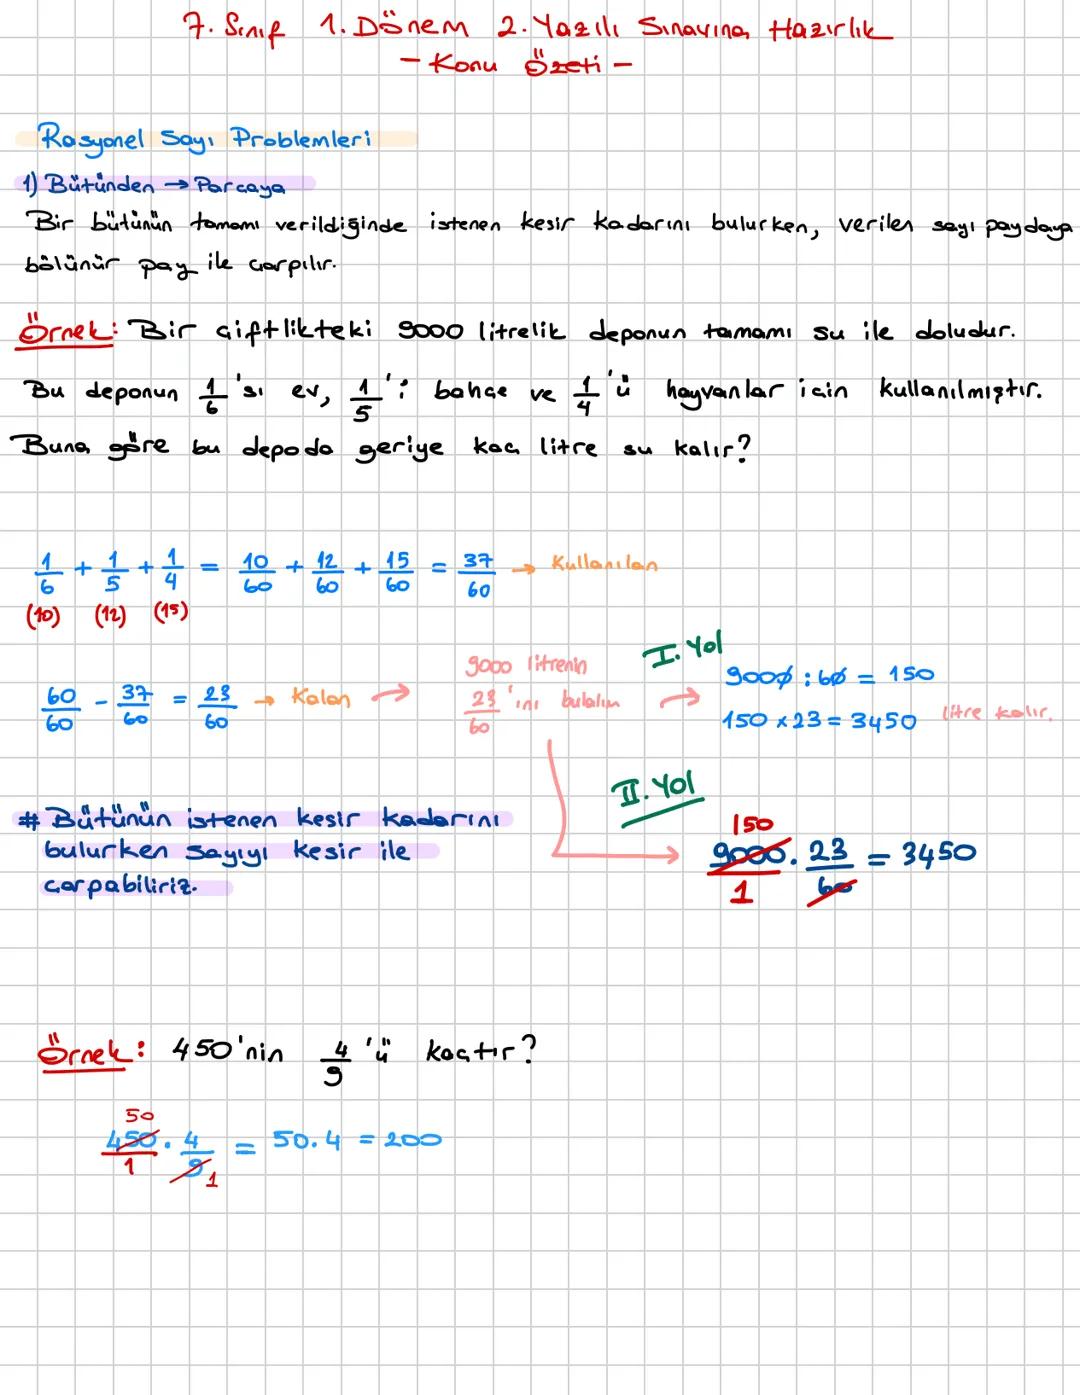 7. Sınıf 1. Dönem 2. Yazılı Sınavına Hazırlık
- Konu Özeti -
Rasyonel Sayı Problemleri
1) Bütünden → Parçaya
Bir bütünün tamamı verildiğinde istenen kesir kadarını bulurken, verilen sayı paydaya
bölünür pay ile çarpılır.
Örnek: Bir çiftlikteki 9000 litrelik deponun tamamı su ile doludur.
Bu deponun 1/6 'sı ev, 1/5 'i bahçe ve 1/4 'ü hayvanlar için kullanılmıştır.
Buna göre bu depoda geriye kaç litre su kalır?
1/6 + 1/5 + 1/4 = 10/60 + 12/60 + 15/60 = 37/60 → Kullanılan
(10) (12) (15)
60/60 - 37/60 = 23/60 → Kalan →
9000 litrenin
23/60 'ını bulalım →
I. Yol
9000 : 60 = 150
150 x 23 = 3450 litre kalır.
# Bütünün istenen kesir kadarını
bulurken sayıyı kesir ile
çarpabiliriz.
II. Yol
150
9000/1 . 23/60 = 3450
Örnek: 450'nin 4/9 'ü kaçtır?
50
450/1 . 4/9 = 50.4 = 200
1